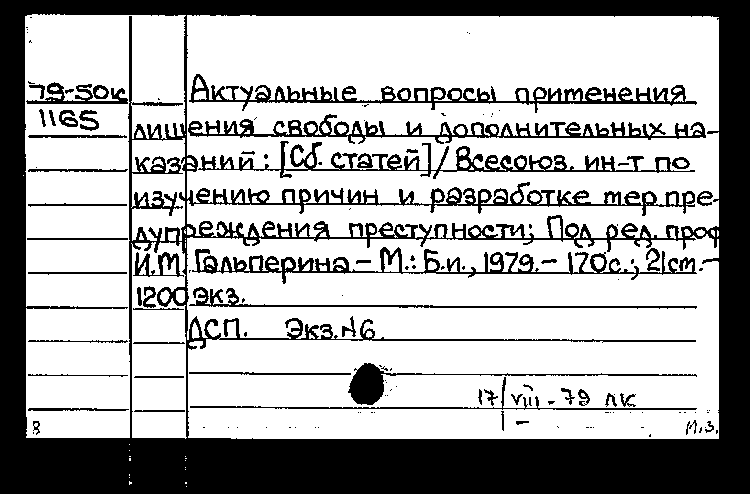 79-50к Актуальные вопросы применения
1165 лишения свободы и дополнительных на-
казаний: [Сб. статей] / Всесоюз. ин-т по
изучению причин и разработке мер пре-
дупреждения преступности; Под ред. проф
И.М. Гальперина – М.: Б.и., 1979. – 170с.; 21см. –
1200 экз.
ДСП. Экз.№6.
17/VIII - 79 лк
8 М.З.